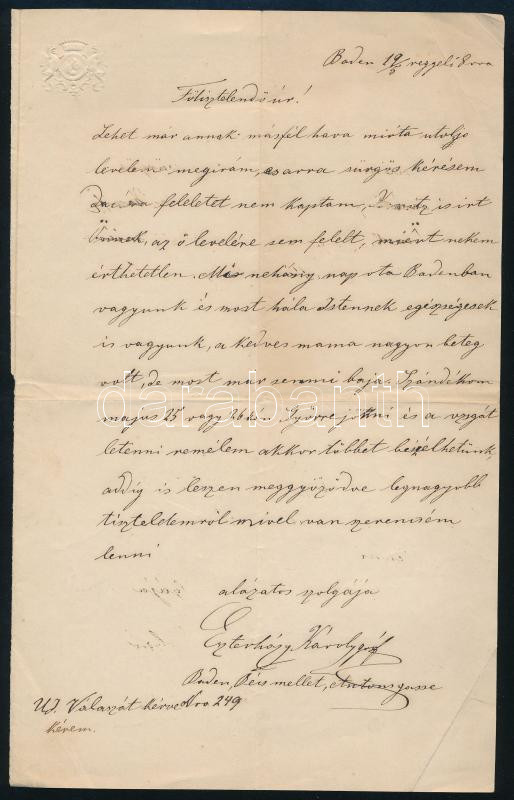 Baden 19/5 reggeli 8 óra
Főtisztelendő úr!
Lehet már annak másfél hava mióta utolsó
levelem megirám, és arra sürgős kérésem
feleletet nem kaptam, is irt
Önnek, az ő levelére sem felelt, miért nekem
érthetetlen. Már néhány nap ota Badenban
vagyunk és most hála Istennek egészségesek
is vagyunk, a kedves mama nagyon beteg
volt, de most már semmi baja. Szándékom
május 25 vagy 26 án Győrre jönni és a vizgát
letenni remélem akkor többet beszélhetünk,
addig is leszen meggyőződve legnagyobb
tiszteletemről mivel van szerencsém
lenni
alázatos szolgája
Eszterházy Károly gróf
Baden, Bécs mellet, Antonsgasse
Nro 249
UI. Válaszát kérve
kérem.
darabanth